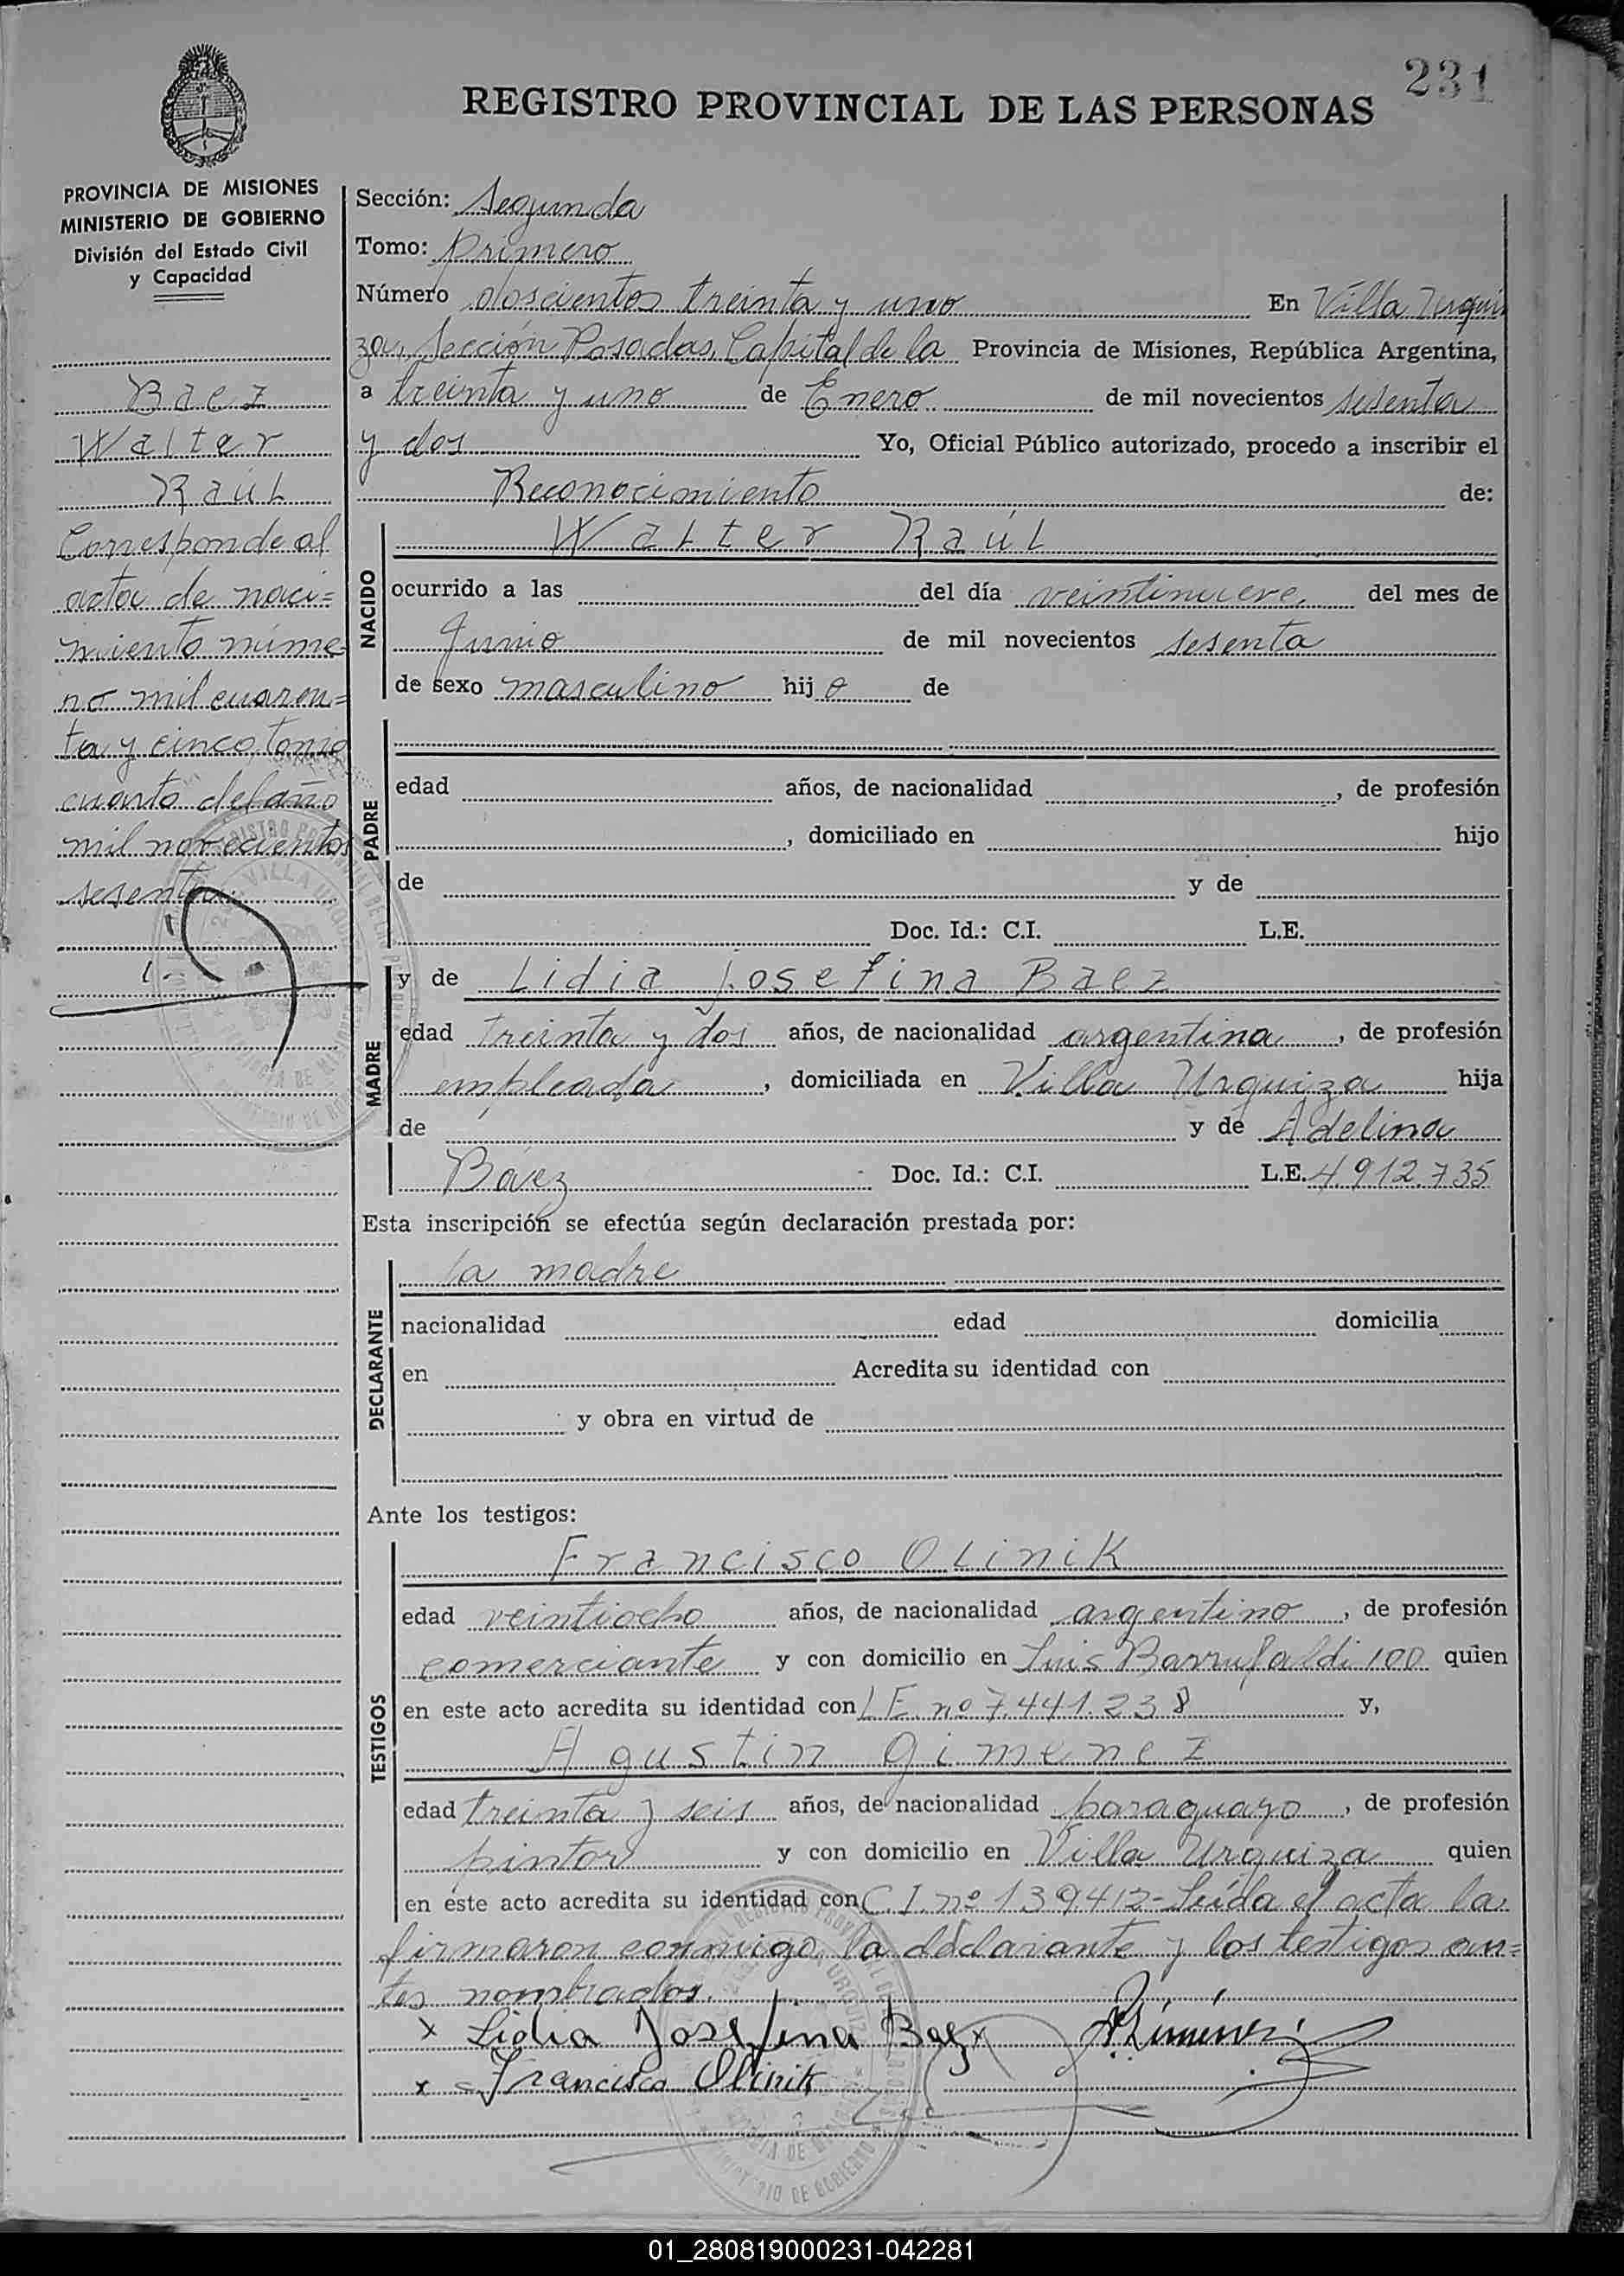 231
REGISTRO PROVINCIAL DE LAS PERSONAS
PROVINCIA DE MISIONES
MINISTERIO DE GOBIERNO
División del Estado Civil
y Capacidad
Baez
Walter
Raúl
Corresponde al
acta de naci=
miento núme
ro mil cuaren=
ta y cinco, tomo
cuarto del año
mil novecientos
sesenta.
Sección: Segunda
Tomo: Primero
Número doscientos treinta y uno En Villa Urqui
za, Sección Posadas, Capital de la Provincia de Misiones, República Argentina,
a treinta y uno de Enero de mil novecientos sesenta
y dos Yo, Oficial Público autorizado, procedo a inscribir el
Reconocimiento de:
NACIDO
Walter Raúl
ocurrido a las del día veintinueve, del mes de
Junio de mil novecientos sesenta
de sexo masculino hijo de
PADRE
edad años, de nacionalidad , de profesión
, domiciliado en hijo
de y de
Doc. Id.: C.I. L.E.
MADRE
y de Lidia Josefina Baez
edad treinta y dos años, de nacionalidad argentina , de profesión
empleada , domiciliada en Villa Urquiza hija
de y de Adelina
Báez Doc. Id.: C.I. L.E. 4.912.735
Esta inscripción se efectúa según declaración prestada por:
DECLARANTE
la madre
nacionalidad edad domicilia
en Acredita su identidad con
y obra en virtud de
Ante los testigos:
TESTIGOS
Francisco Olinik
edad veintiocho años, de nacionalidad argentino , de profesión
comerciante y con domicilio en Luis Barrufaldi 100 quien
en este acto acredita su identidad con L E. nº 7.441.238 y,
Agustin Gimenez
edad treinta y seis años, de nacionalidad paraguayo , de profesión
pintor y con domicilio en Villa Urquiza quien
en este acto acredita su identidad con C.I. nº 139.412- Leída el acta la
firmaron conmigo la declarante y los testigos an=
tes nombrados.
x Lidia Josefina Baez
x Francisco Olinik
01_280819000231-042281